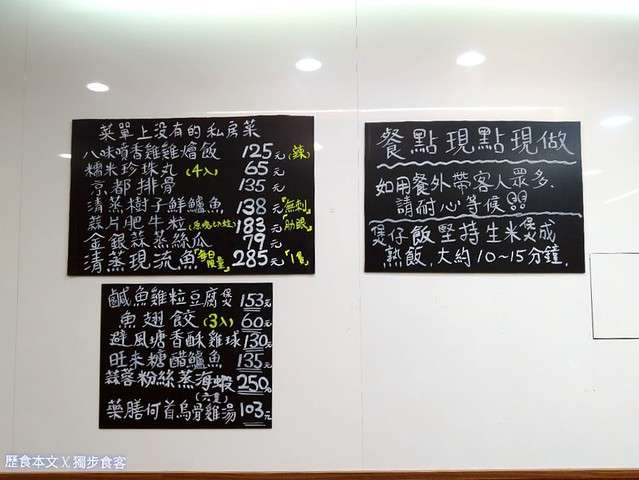 菜單上沒有的私房菜
八味噴香雞雞燴飯 125元(辣)
糯米珍珠丸(4入) 65元
京都排骨 135元
清蒸樹子鮮鱸魚 138元「無刺」
蒜片肥牛粒 183元「肋眼」
金銀蒜蒸絲瓜 79元
清蒸現流魚「每日限量」285元「1隻」
鹹魚雞粒豆腐煲 153元
魚翅餃(3入) 60元
避風塘香酥雞球 130元
旺來糖醋鱸魚 135元
蒜蓉粉絲蒸海蝦(六隻) 250元
藥膳何首烏骨雞湯 103元
餐點現點現做
如用餐外帶客人眾多,
請耐心等候
煲仔飯堅持生米煲成
熟飯,大約10~15分鐘.
歷食本文X獨步食客